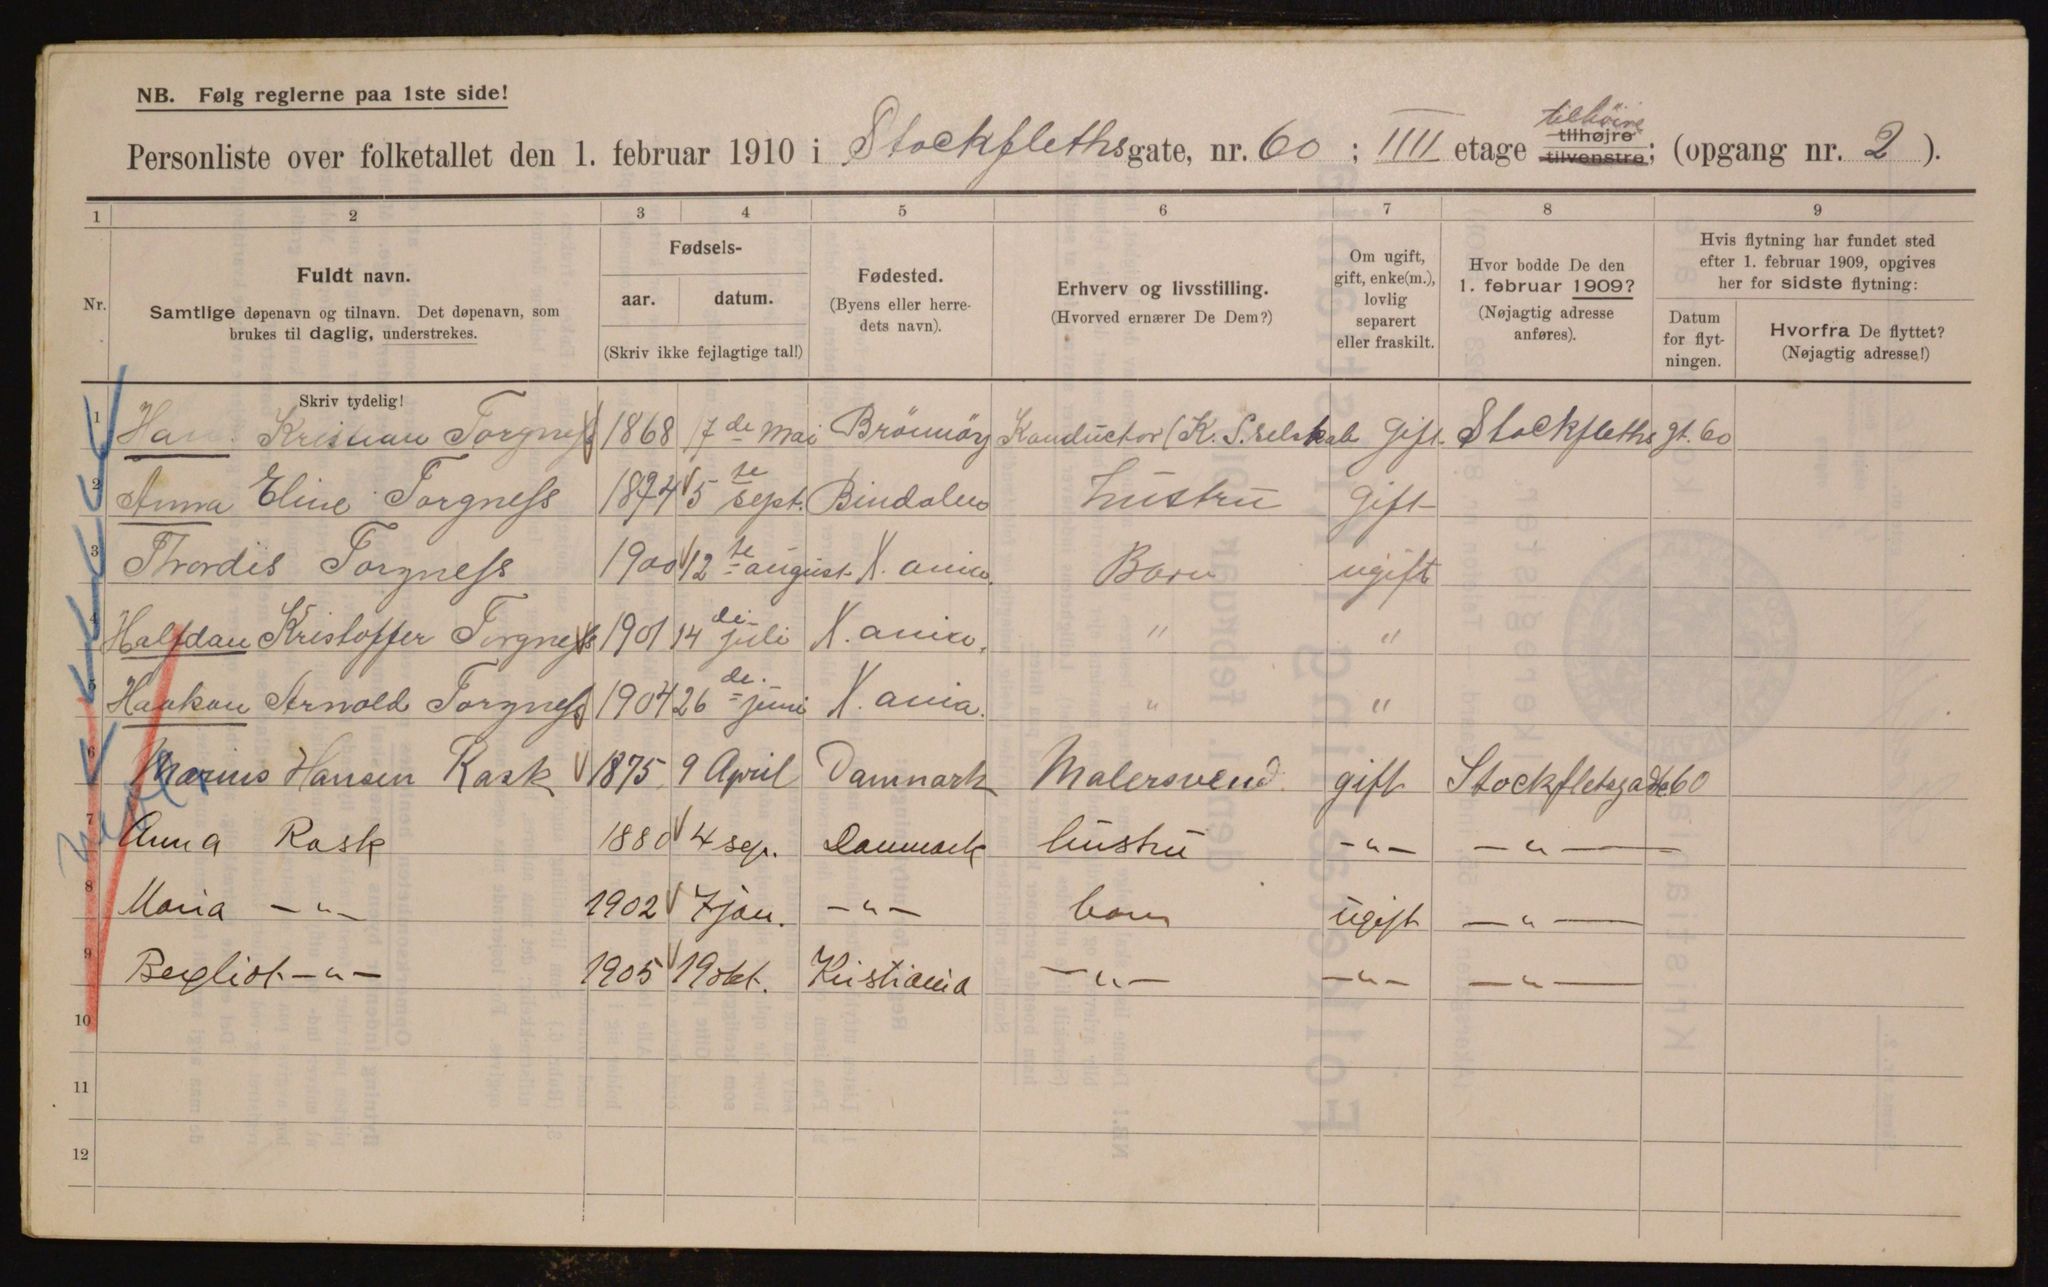 NB. Følg reglerne paa 1ste side!
tilhöire
Personliste over folketallet den 1. februar 1910 i Stockflethsgate, nr. 60 ; IIII etage tilhøjre tilvenstre; (opgang nr. 2 ).
1 2 3 4 5 6 7 8 9
Nr.
Fuldt navn.
Samtlige døpenavn og tilnavn. Det døpenavn, som
brukes til daglig, understrekes.
Skriv tydelig!
Fødsels-
aar. datum.
(Skriv ikke fejlagtige tal!)
Fødested.
(Byens eller herre-
dets navn).
Erhverv og livsstilling.
(Hvorved ernærer De Dem?)
Om ugift,
gift, enke(m.),
lovlig
separert
eller fraskilt.
Hvor bodde De den
1. februar 1909?
(Nøjagtig adresse
anføres).
Hvis flytning har fundet sted
efter 1. februar 1909, opgives
her for sidste flytning:
Datum
for flyt-
ningen.
Hvorfra De flyttet?
(Nøjagtig adresse!)
1 Kristian Torgness 1868 17de mai Brönnöy Konductor (K. S. selskab Gift Stockfleths gt. 60
2 Anna Eline Torgness 1874 5te sept. Bindalen hustru Gift
3 Thordis Torgness 1900 12te august X.ania. Barn ugift
4 Halfdan Kristoffer Torgness 1901 14de juli X.ania. " "
5 Haakon Arnold Torgness 1904 26de juni X.ania. " "
6 Marius Hansen Rask 1875 9 April Danmark Malersvend gift Stockfletsgade 60
7 Anna Rask 1880 4 sep. Danmark hustru -"- -"-
8 Maria -"- 1902 7 jan. -"- barn ugift -"-
9 Bergliot -"- 1905 19 okt. Kristiania -"- -"- -"-
10
11
12